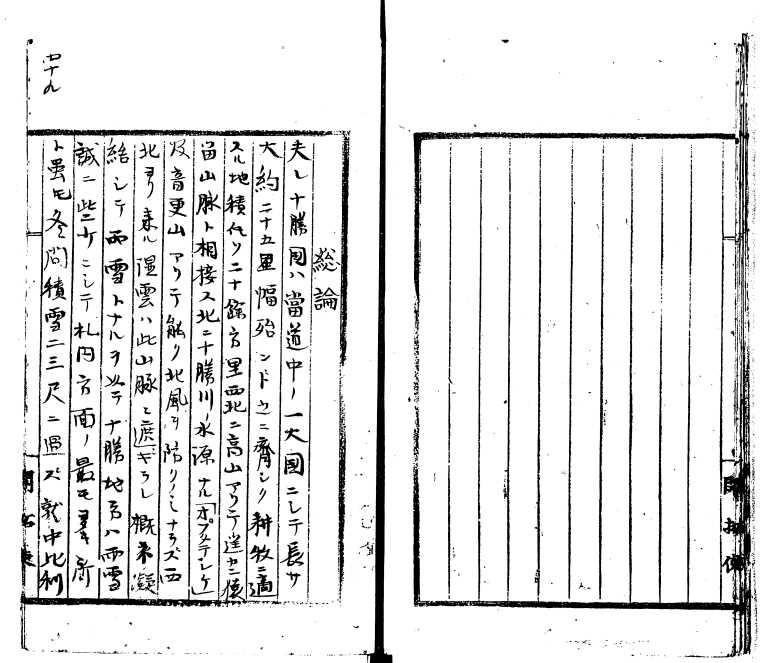 総論
夫レ十勝國ハ當道中ノ一大國ニシテ長サ
大約二十五里幅殆ンド之ニ齊シク耕牧ニ適
スル地積凡ソ二十餘方里西北ニ高山アリテ遥カニ
山脈ト相接ス北ニ十勝川ノ水源ナル「オプタテシケ」
及音更山アリテ能ク北風ヲ防クノミナラズ西
北ヨリ来ル湿雲ハ此山脈ニ遮ギラレ概来凝
結シテ雨雪トナルヲ以テ十勝地方ハ雨雪
誠ニ些少ニシテ札内方面ノ最モ多キ所
ト雖モ冬間積雪二三尺ニ過ズ就中比利
四十九